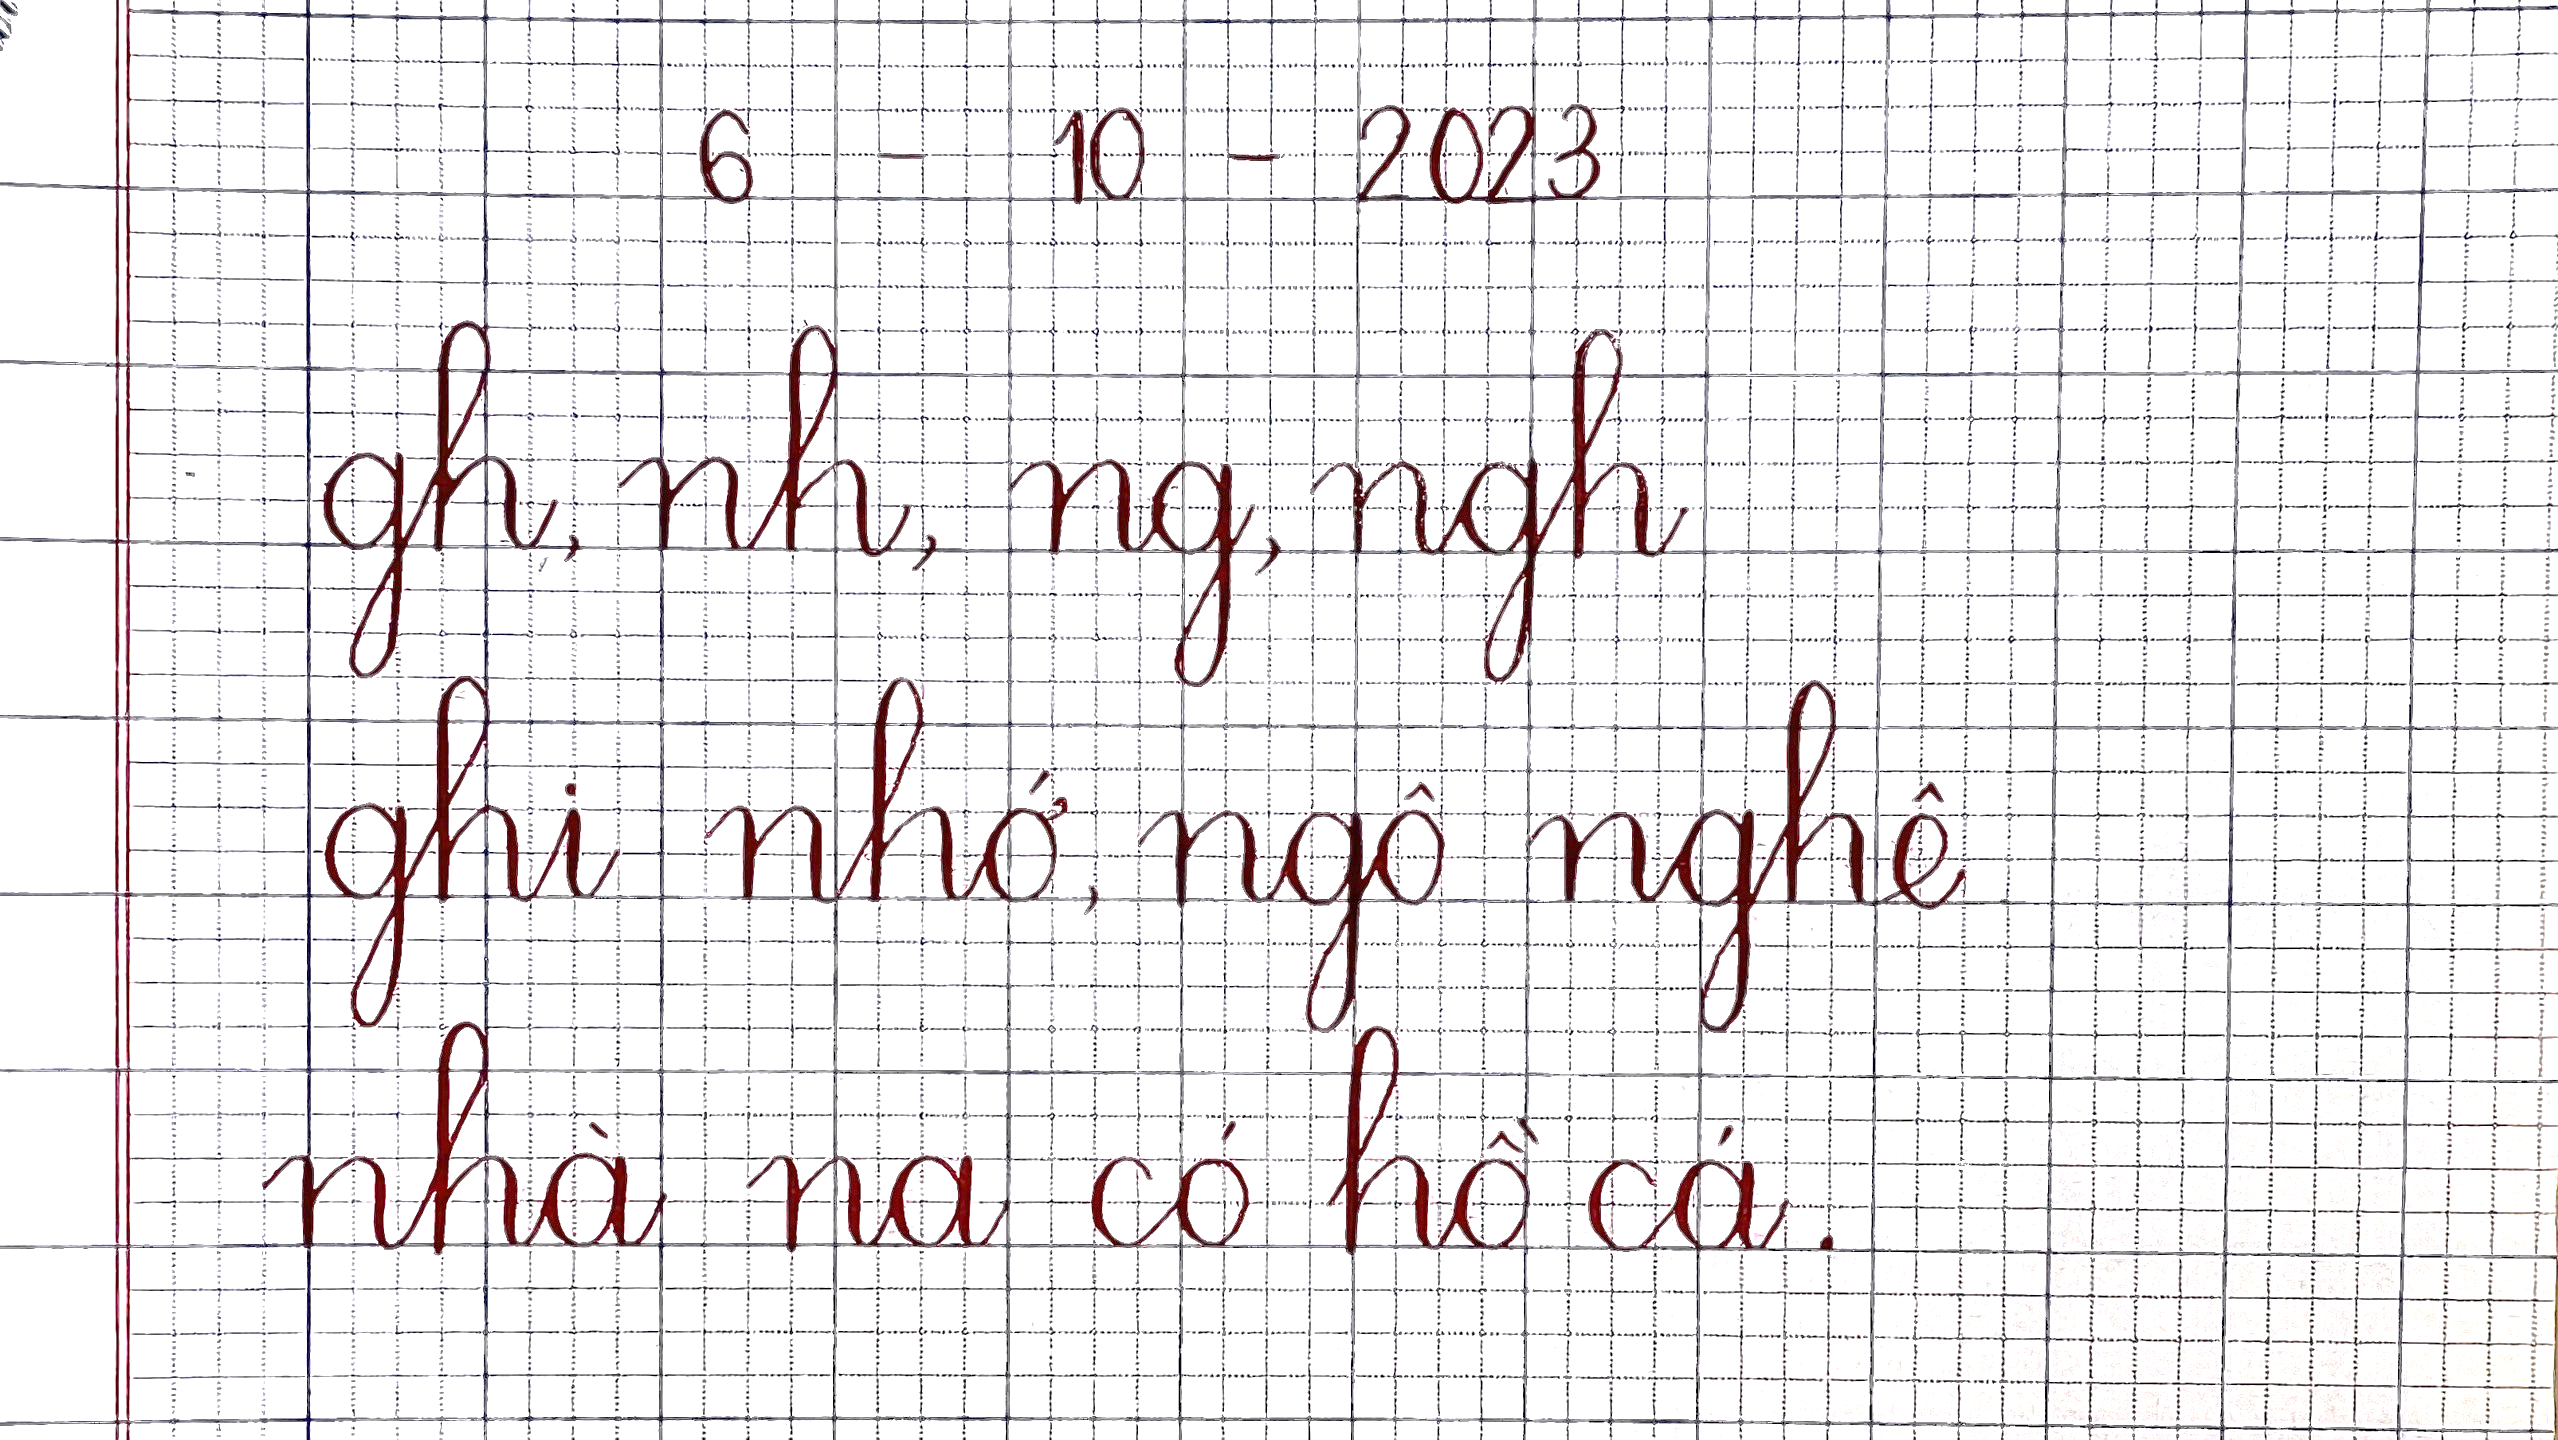 6 - 10 - 2023
gh, nh, ng, ngh
ghi nhớ, ngô nghê
nhà na có hồ cá.